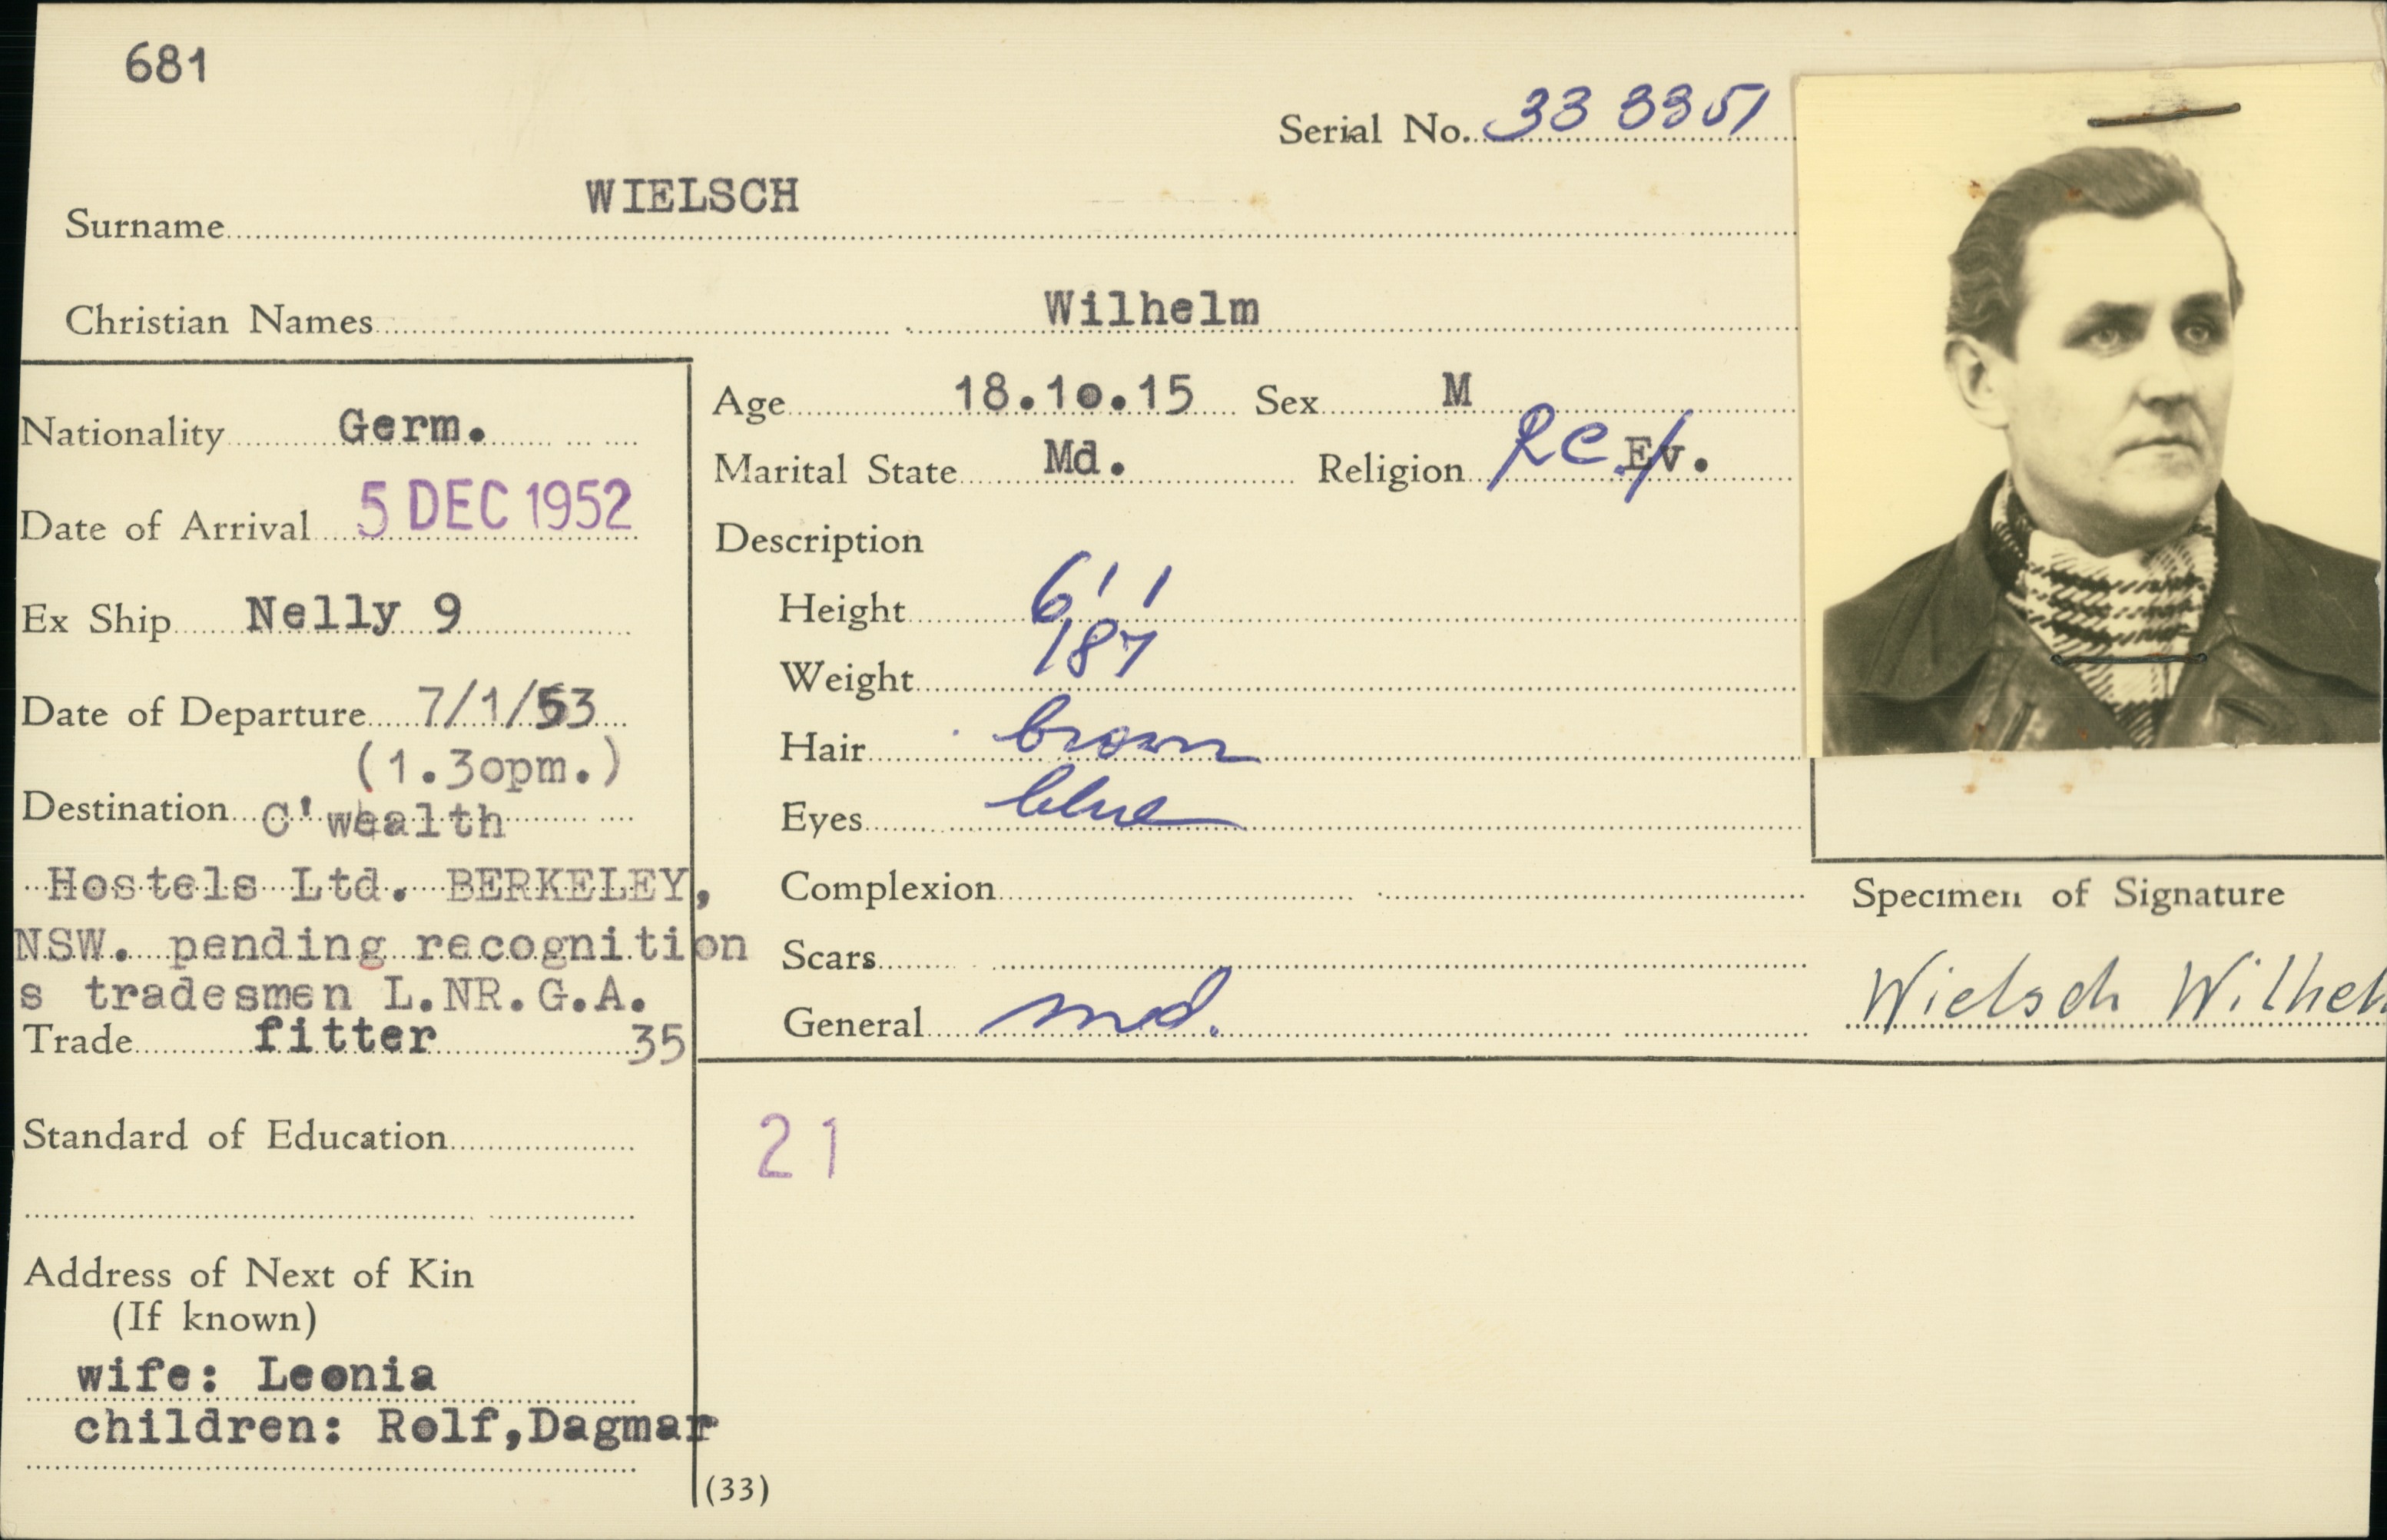 681
Serial No. 33 3351
Surname WIELSCH
Christian Names Wilhelm
Nationality Germ.
Date of Arrival 5 DEC 1952
Ex Ship Nelly 9
Date of Departure 7/1/53
(1.3opm.)
Destination C'wealth
Hostels Ltd. BERKELEY,
NSW. pending recognition
s tradesmen L.NR.G.A.
Trade fitter 35
Standard of Education
Address of Next of Kin
(If known)
wife: Leonia
children: Rolf,Dagmar
Age 18.1o.15 Sex M
Marital State Md. Religion RC Ev.
Description
Height 6' 1
Weight 187
Hair brown
Eyes blue
Complexion
Scars
General md.
Specimen of Signature
Wielsch Wilhel
21
(33)